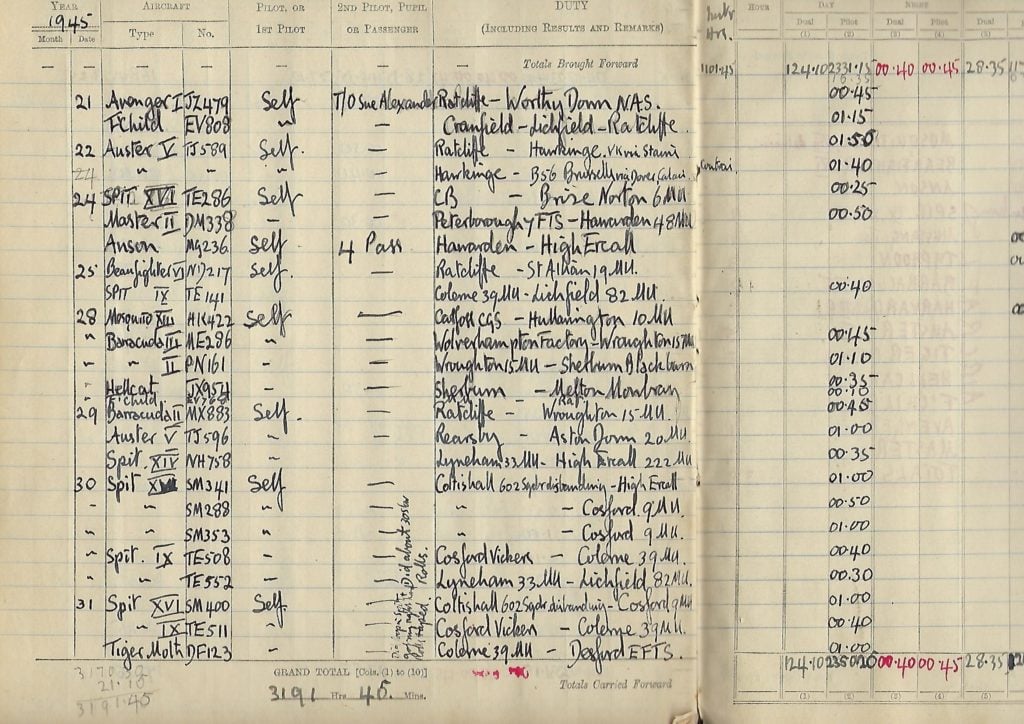 YEAR AIRCRAFT PILOT, OR 2ND PILOT, PUPIL DUTY HOUR DAY NIGHT
1945 1ST PILOT OR PASSENGER (INCLUDING RESULTS AND REMARKS) Hrs. Dual Pilot Dual Pilot Dual
Month Date Type No. (1) (2) (3) (4) (5)
— — — — — — Totals Brought Forward 1101.45 124.10 2331.15 00.40 00.45 28.35
21 Avenger I JZ479 Self T/O Sue Alexander Ratcliffe - Worthy Down NAS. 00.45
F'child EV808 " — Cranfield - Lichfield - Ratcliffe. 01.15
22 Auster V TJ589 Self. — Ratcliffe - Hawkinge. 01.50
24 " " " " — Hawkinge - B56 Brussels via Dover Calais. 01.40
24 SPIT XVI TE286 Self — CB - Brize Norton 6 MU 00.25
Master II DM338 - — Peterborough 7 FTS - Hawarden 48 MU 00.50
Anson MG236 Self 4 Pass Hawarden - High Ercall
25 Beaufighter VI ND217 Self. — Ratcliffe - St Athan 19 MU.
SPIT IX TE141 Colerne 39 MU - Lichfield 82 MU. 00.40
28 Mosquito XIII HK422 Self — Catfoss CGS - Hullavington 10 MU
" Barracuda III ME286 " Wolverhampton Factory - Wroughton 15 MU 00.45
" " II PN161 — Wroughton 15 MU - Sherburn Blackburn 01.10
" Hellcat JX954 — Sherburn - Melton Mowbray 00.35
" F'child Rat. 00.10
29 Barracuda II MX883 Self. — Ratcliffe - Wroughton 15 MU. 00.45
Auster V TJ596 " Rearsby - Aston Down 20 MU. 01.00
Spit. XIV NH758 " Lyneham 33 MU - High Ercall 222 MU 00.35
30 Spit XVI SM341 Self Coltishall 602 Sqdr disbanding - High Ercall 01.00
- " SM288 - " - Cosford 9 MU. 00.50
" " SM353 - " - Cosford 9 MU. 01.00
" Spit. IX TE508 - Cosford Vickers - Colerne 39 MU. 00.40
" " TE552 - Lyneham 33 MU - Lichfield 82 MU. 00.30
31 Spit XVI SM400 Self. Coltishall 602 Sqdr. disbanding - Cosford 9 MU 01.00
" IX TE511 " Cosford Vickers - Colerne 39 MU. 00.40
Tiger Moth DF123 - Colerne 39 MU. - Desford EFTS. 01.00
Did about 30 slow Rolls.
GRAND TOTAL [Cols. (1) to (10)] Totals Carried Forward 124.10 2350.20 00.40 00.45 28.35
3191 Hrs. 45 Mins. (1) (2) (3) (4) (5)
21.18
3191.45